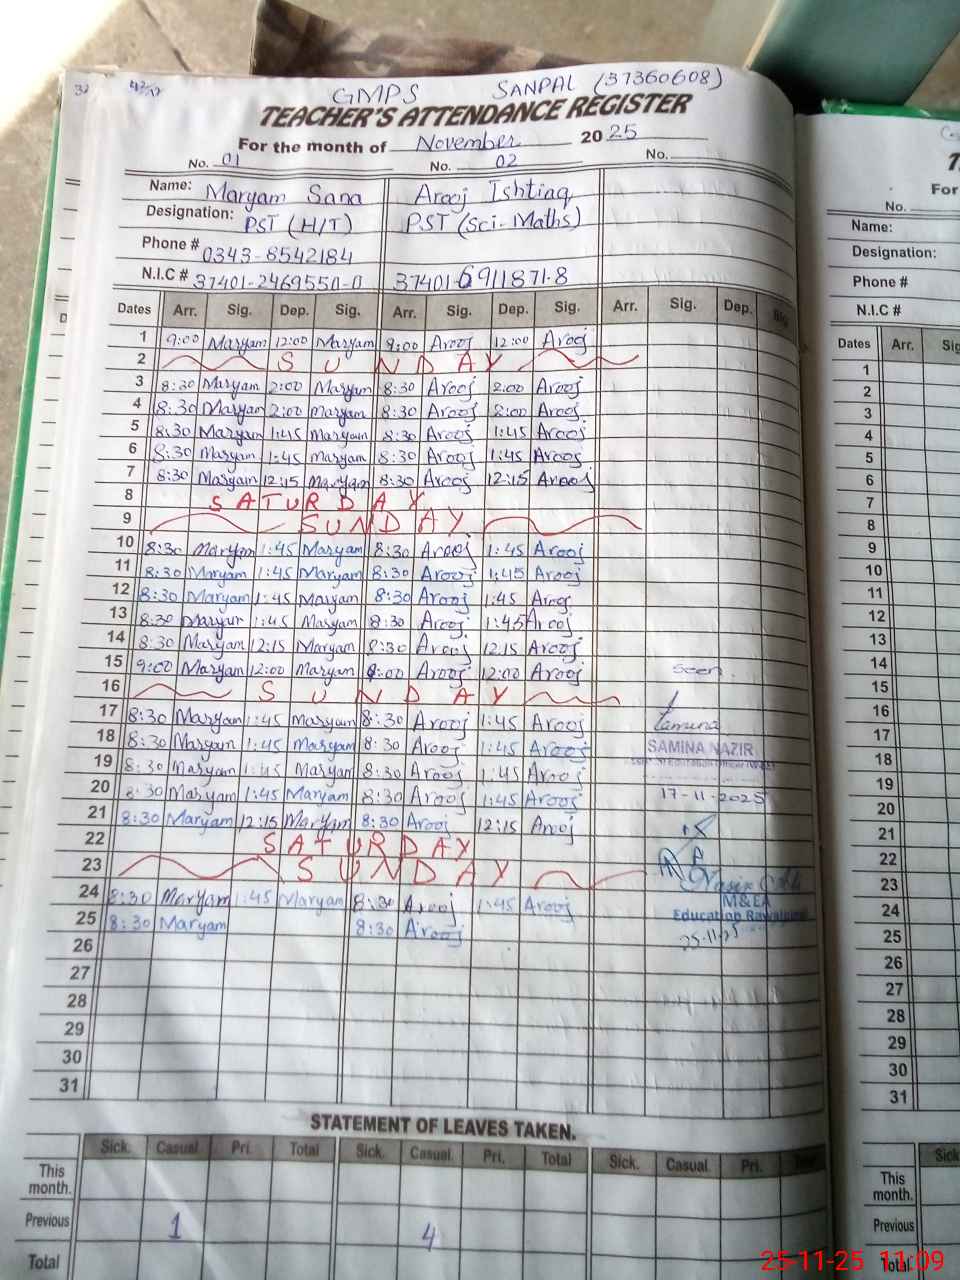 GMPS SANPAL (37360608)
TEACHER'S ATTENDANCE REGISTER
For the month of November 2025
No. 01 No. 02 No.
Name: Maryam Sana Arooj Ishtiaq
Designation: PST (H/T) PST (Sci-Maths)
Phone # 0343-8542184
N.I.C # 37401-2469550-0 37401-6911871-8
Dates Arr. Sig. Dep. Sig. Arr. Sig. Dep. Sig. Arr. Sig. Dep. Sig
1 9:00 Maryam 12:00 Maryam 9:00 Arooj 12:00 Arooj
2 SUNDAY
3 8:30 Maryam 2:00 Maryam 8:30 Arooj 2:00 Arooj
4 8:30 Maryam 2:00 Maryam 8:30 Arooj 2:00 Arooj
5 8:30 Maryam 1:45 Maryam 8:30 Arooj 1:45 Arooj
6 8:30 Maryam 1:45 Maryam 8:30 Arooj 1:45 Arooj
7 8:30 Maryam 12:15 Maryam 8:30 Arooj 12:15 Arooj
8 SATURDAY
9 SUNDAY
10 8:30 Maryam 1:45 Maryam 8:30 Arooj 1:45 Arooj
11 8:30 Maryam 1:45 Maryam 8:30 Arooj 1:45 Arooj
12 8:30 Maryam 1:45 Maryam 8:30 Arooj 1:45 Arooj
13 8:30 Maryam 1:45 Maryam 8:30 Arooj 1:45 Arooj
14 8:30 Maryam 12:15 Maryam 8:30 Arooj 12:15 Arooj
15 9:00 Maryam 12:00 Maryam 9:00 Arooj 12:00 Arooj
16 SUNDAY
17 8:30 Maryam 1:45 Maryam 8:30 Arooj 1:45 Arooj
18 8:30 Maryam 1:45 Maryam 8:30 Arooj 1:45 Arooj
19 8:30 Maryam 1:45 Maryam 8:30 Arooj 1:45 Arooj
20 8:30 Maryam 1:45 Maryam 8:30 Arooj 1:45 Arooj
21 8:30 Maryam 12:15 Maryam 8:30 Arooj 12:15 Arooj
22 SATURDAY
23 SUNDAY
24 8:30 Maryam 1:45 Maryam 8:30 Arooj 1:45 Arooj
25 8:30 Maryam 8:30 Arooj
26
27
28
29
30
31
seen
SAMINA NAZIR
17-11-2025
M&EA
Education
25-11-25
STATEMENT OF LEAVES TAKEN.
Sick. Casual Pri. Total Sick. Casual. Pri. Total Sick. Casual. Pri.
This month.
Previous 1 4
Total
For
No.
Name:
Designation:
Phone #
N.I.C #
Dates Arr. Sig
1
2
3
4
5
6
7
8
9
10
11
12
13
14
15
16
17
18
19
20
21
22
23
24
25
26
27
28
29
30
31
Sick
This month.
Previous
Total
25-11-25 11:09